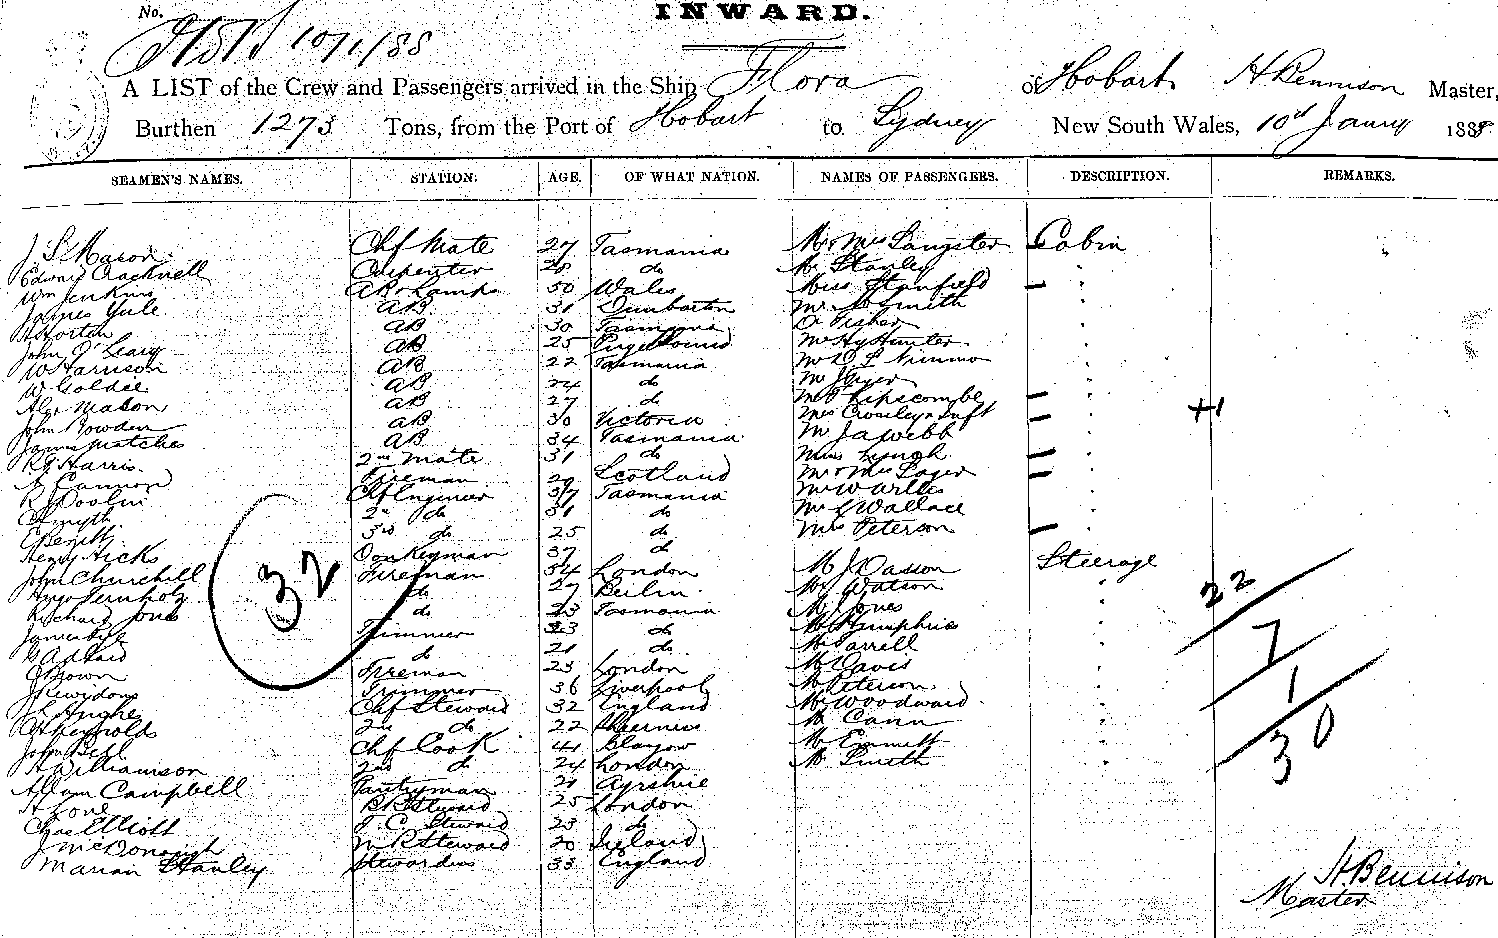 No.
INWARD.
10/1/88
A LIST of the Crew and Passengers arrived in the Ship Flora of Hobart H Bennison Master,
Burthen 1273 Tons, from the Port of Hobart to Sydney New South Wales, 10th Jany 1888
SEAMEN'S NAMES. STATION. AGE. OF WHAT NATION. NAMES OF PASSENGERS. DESCRIPTION. REMARKS.
J. S. Mason Chf Mate 27 Tasmania Mr & Mrs Langster Cabin
Edward Cracknell Carpenter 28 do Mr Stanley
Wm Jenkins AB & Lamps 50 Wales Miss Stanfield
James Yule AB 31 Dumbarton Mr Smith
Horton AB 30 Tasmania Dr Fisher
John O'Leary AB 25 Mr Hy Hunter
W Harrison AB 22 Tasmania Mr Nimmo
W Goldie AB 24 do Mr
Alex Mason AB 27 do Lipscombe
John Bowden AB 30 Victoria Mrs Crosley & Inft +1
James Matches AB 34 Tasmania Mr J A Webb
R G Harris 2nd Mate 31 do Miss Lynch
Cannon Fireman 29 Scotland Mr & Mrs Lager
R Doolin Chf Engineer 37 Tasmania Mr W Willis
Smyth 2nd do 31 do Mr Wallace
3rd do 25 do Mrs Peterson
Henry Hicks Donkeyman 37 do
John Churchill Fireman 34 London Mr J Dasson Steerage
Hugo Ternholz do 27 Berlin Mr Watson
Richard Jones do 23 Tasmania Mr Jones
James Trimmer 23 do Mr Humphries
do 21 do Mr Farrell
Brown Fireman 23 London Mr Davis
Trimmer 36 Liverpool Mr Peterson
Hughes Chf Steward 32 England Mr Woodward
Reynolds 2nd do 22 Mr Cann
John Bell Chf Cook 41 Glasgow Mr Emmett
Williamson 2nd do 24 London Mr Smith
Campbell Pantryman 21 Ayrshire
Love Steward 25 London
Chas Elliott F. C. Steward 23 do
J McDonough Steward 20 Ireland
Marian Stanley Stewardess 33 England
32
22
7
1
30
H. Bennison
Master